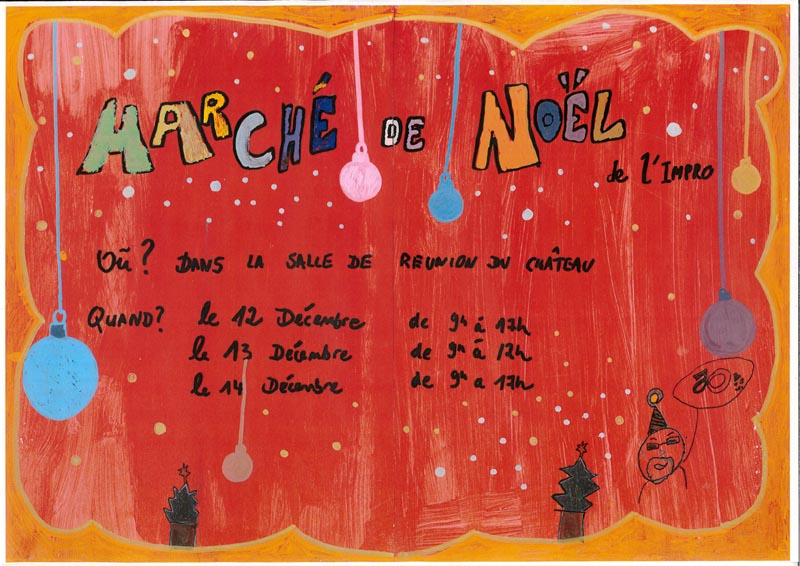 MARCHÉ DE NOËL
de l'IMPRO
Où? DANS LA SALLE DE REUNION DU CHÂTEAU
QUAND? le 12 Décembre de 9h à 17h
le 13 Décembre de 9h à 12h
le 14 Décembre de 9h a 17h